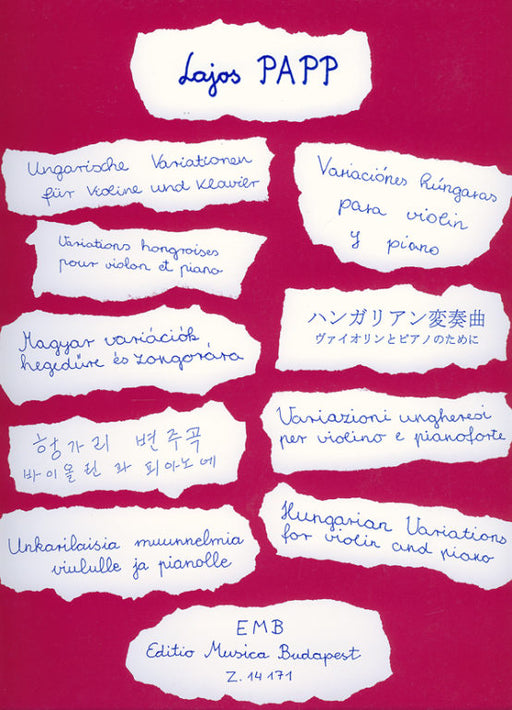 Lajos PAPP
Ungarische Variationen
für Violine und Klavier
Variaciónes húngaras
para violin
y piano
Variations hongroises
pour violon et piano
ハンガリアン変奏曲
ヴァイオリンとピアノのために
Magyar variációk
hegedűre és zongorára
Variazioni ungheresi
per violino e pianoforte
항가리 변주곡
바이올린 피아노에
Unkarilaisia muunnelmia
viululle ja pianolle
Hungarian Variations
for violin and piano
EMB
Editio Musica Budapest
Z. 14 171